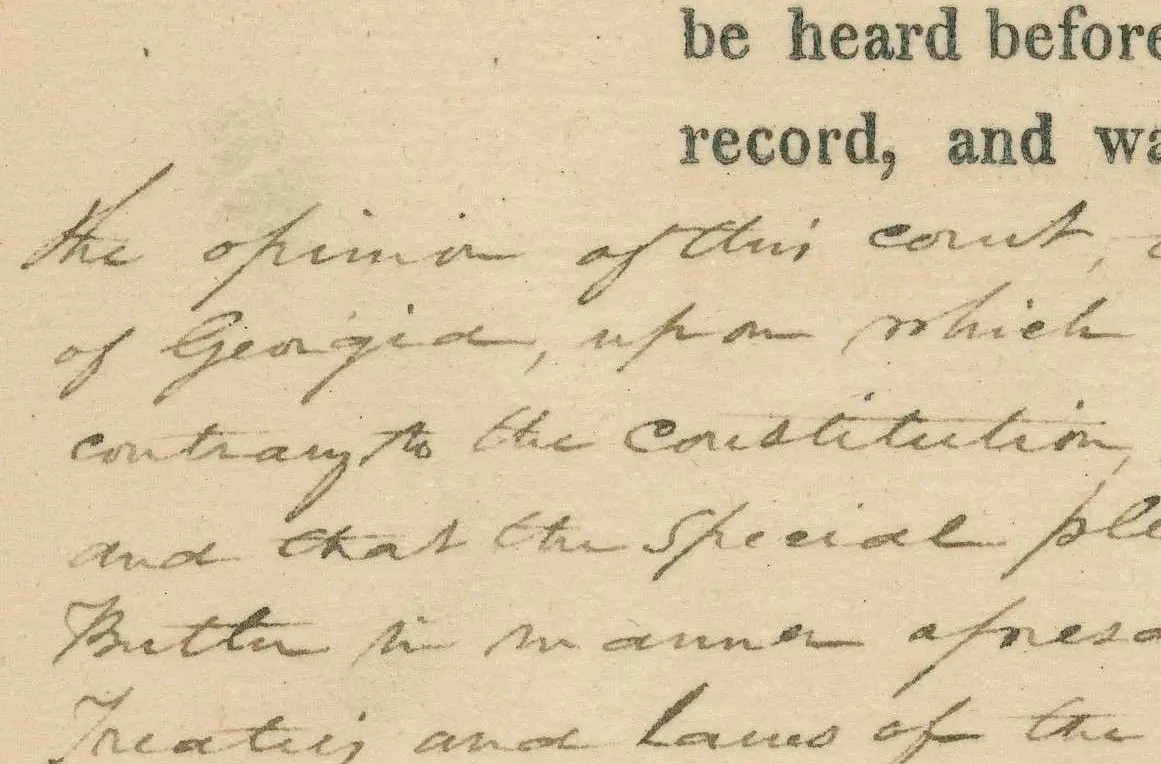 be heard before
record, and wa
the opinion of this court,
of Georgia, upon which
contrary to the Constitution,
and that the Special ple
Butler in manner aforesa
Treaties and Laws of the